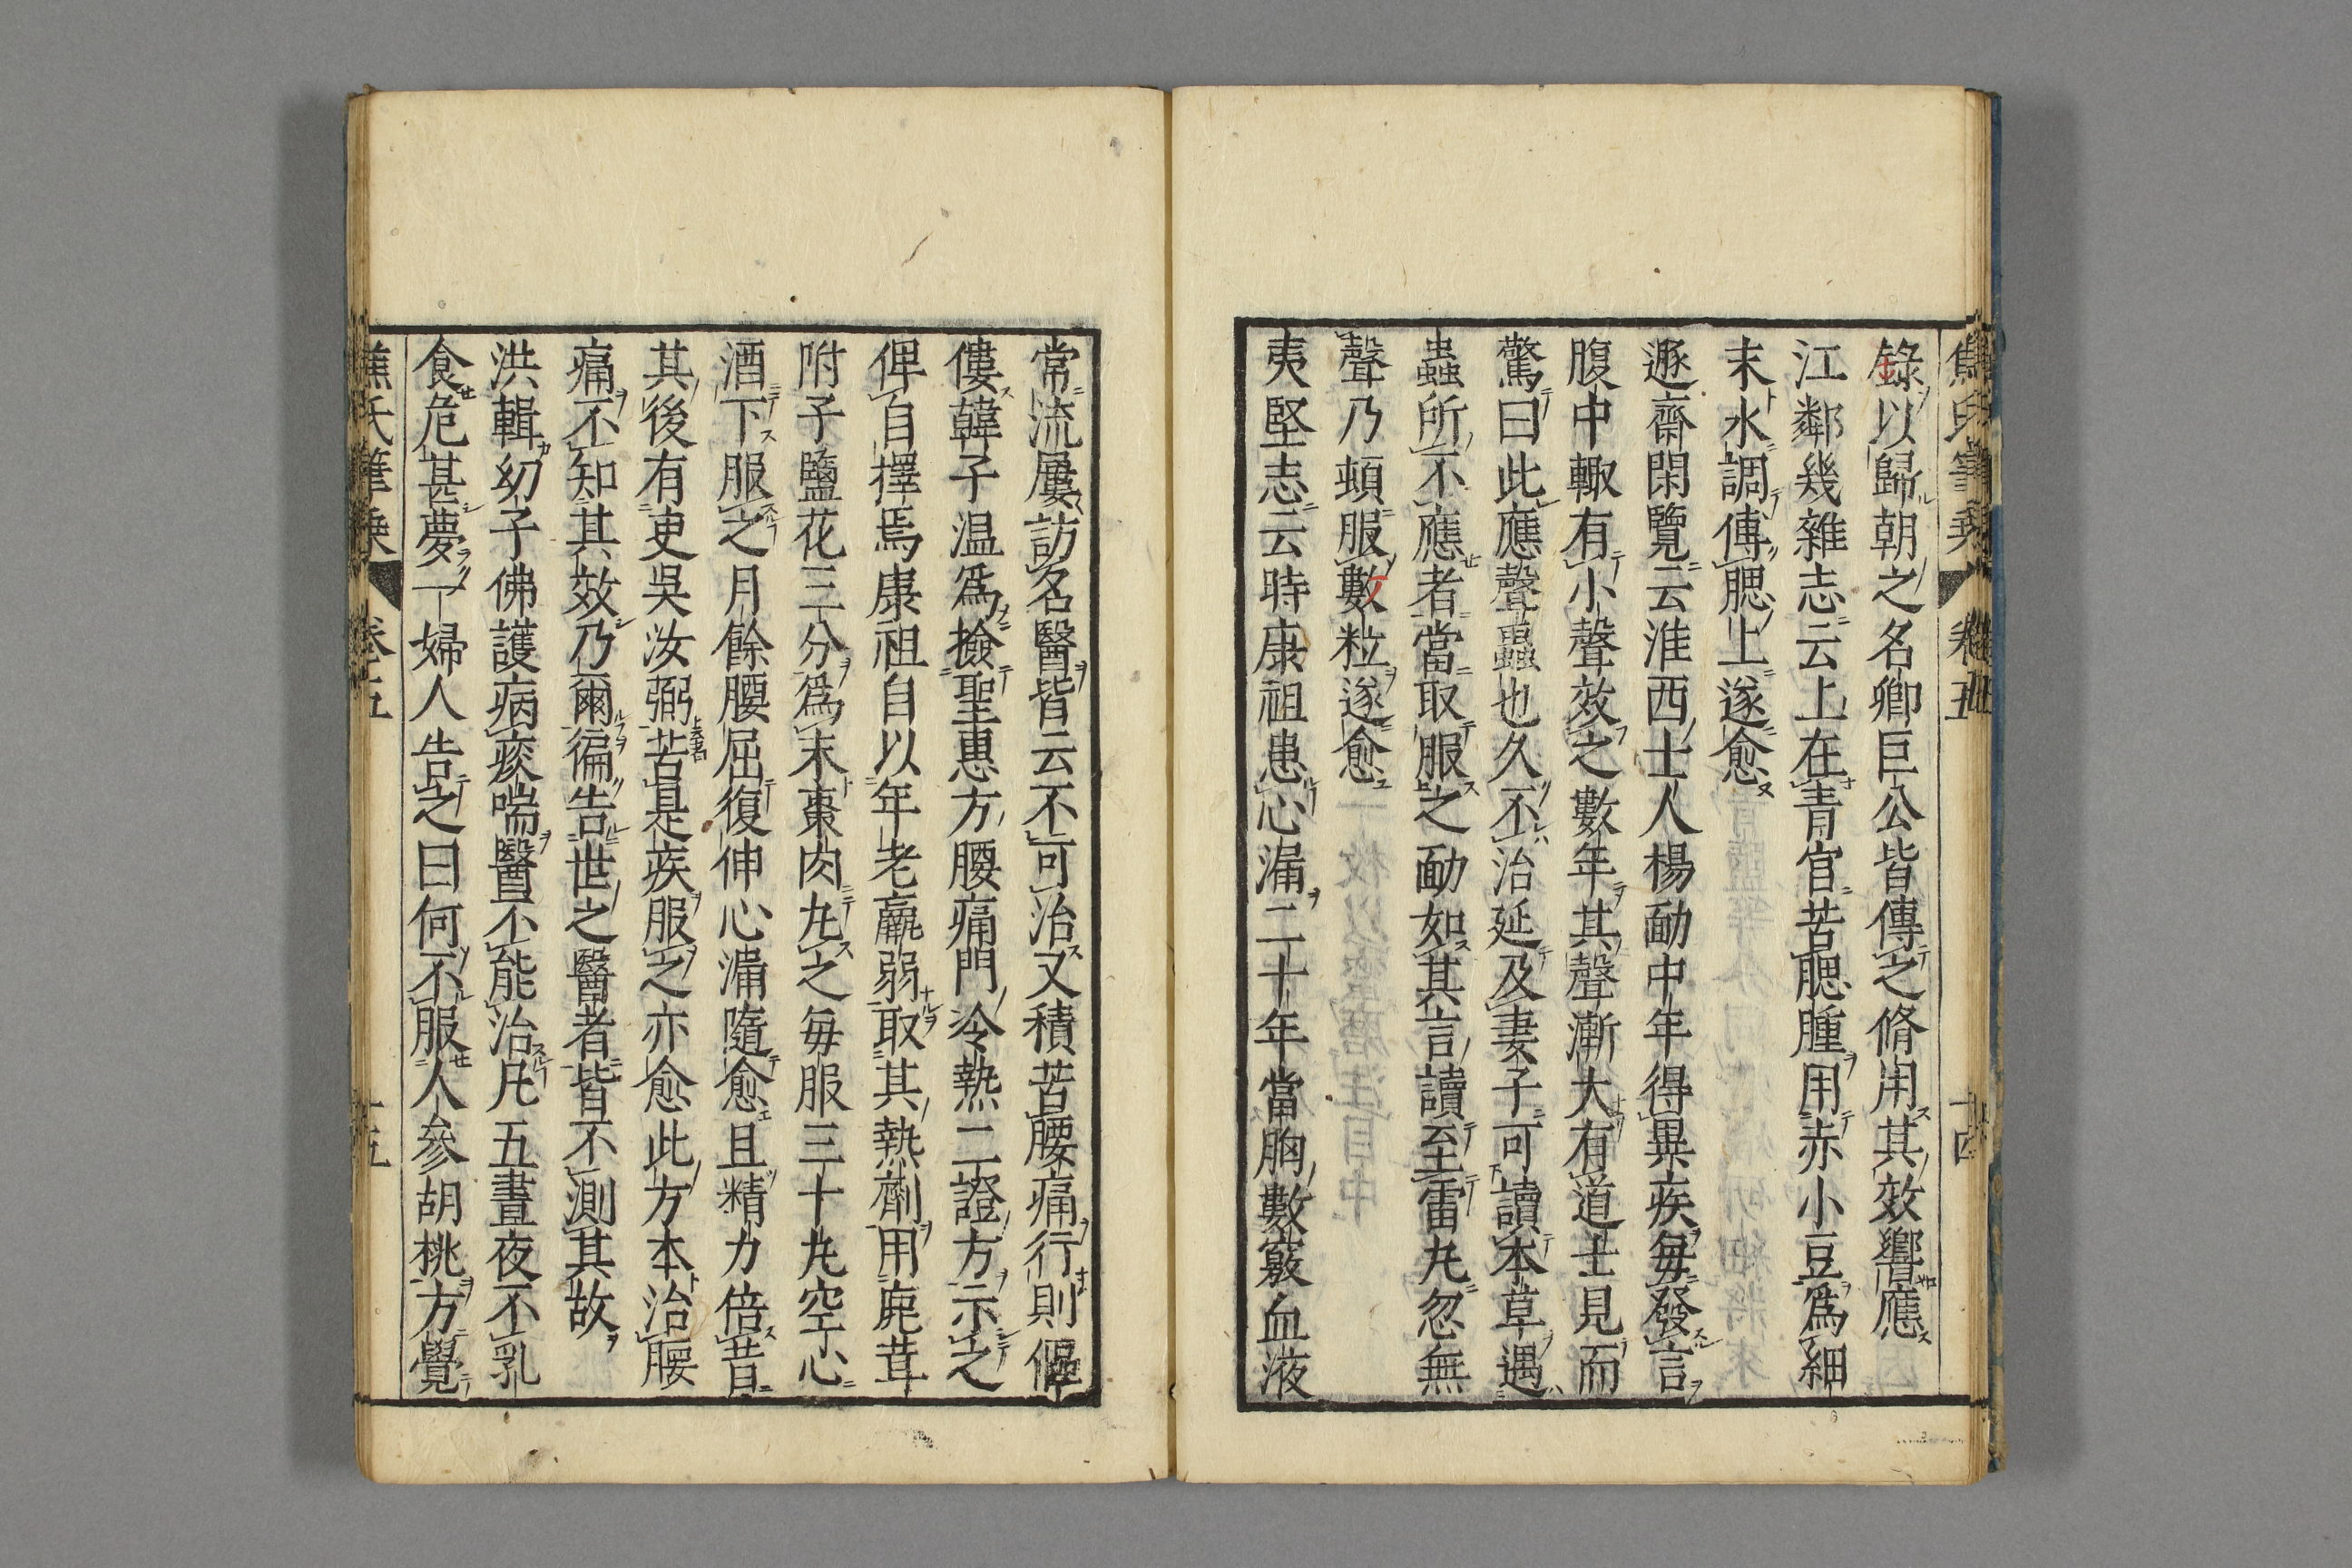 焦氏筆乗 卷五 十四
錄以歸朝之名卿巨公皆傳之脩用其效響應
江鄰幾雜志云上在青宮苦腮腫用赤小豆為細
末水調傅腮上遂愈
遯齋閑覽云淮西士人楊勔中年得異疾每發言
腹中輙有小聲效之數年其聲漸大有道士見而
驚曰此應聲蟲也久不治延及妻子可讀本草遇
蟲所不應者當取服之勔如其言讀至雷丸忽無
聲乃頓服數粒遂愈
夷堅志云時康祖患心漏二十年當胸數竅血液
常流屢訪名醫皆云不可治又積苦腰痛行則傴
僂韓子温爲撿聖惠方腰痛門冷熱二證方示之
俾自擇焉康祖自以年老羸弱取其熱劑用鹿茸
附子鹽花三分爲末棗肉丸之毎服三十丸空心
酒下服之月餘腰屈復伸心漏隨愈且精力倍昔
其後有吏吳汝弼苦是疾服之亦愈此方本治腰
痛不知其效乃爾徧告世之醫者皆不測其故
洪輯幼子佛護病痰喘醫不能治凡五晝夜不乳
食危甚夢一婦人告之曰何不服人參胡桃方覺
焦氏筆乗 卷五 十五